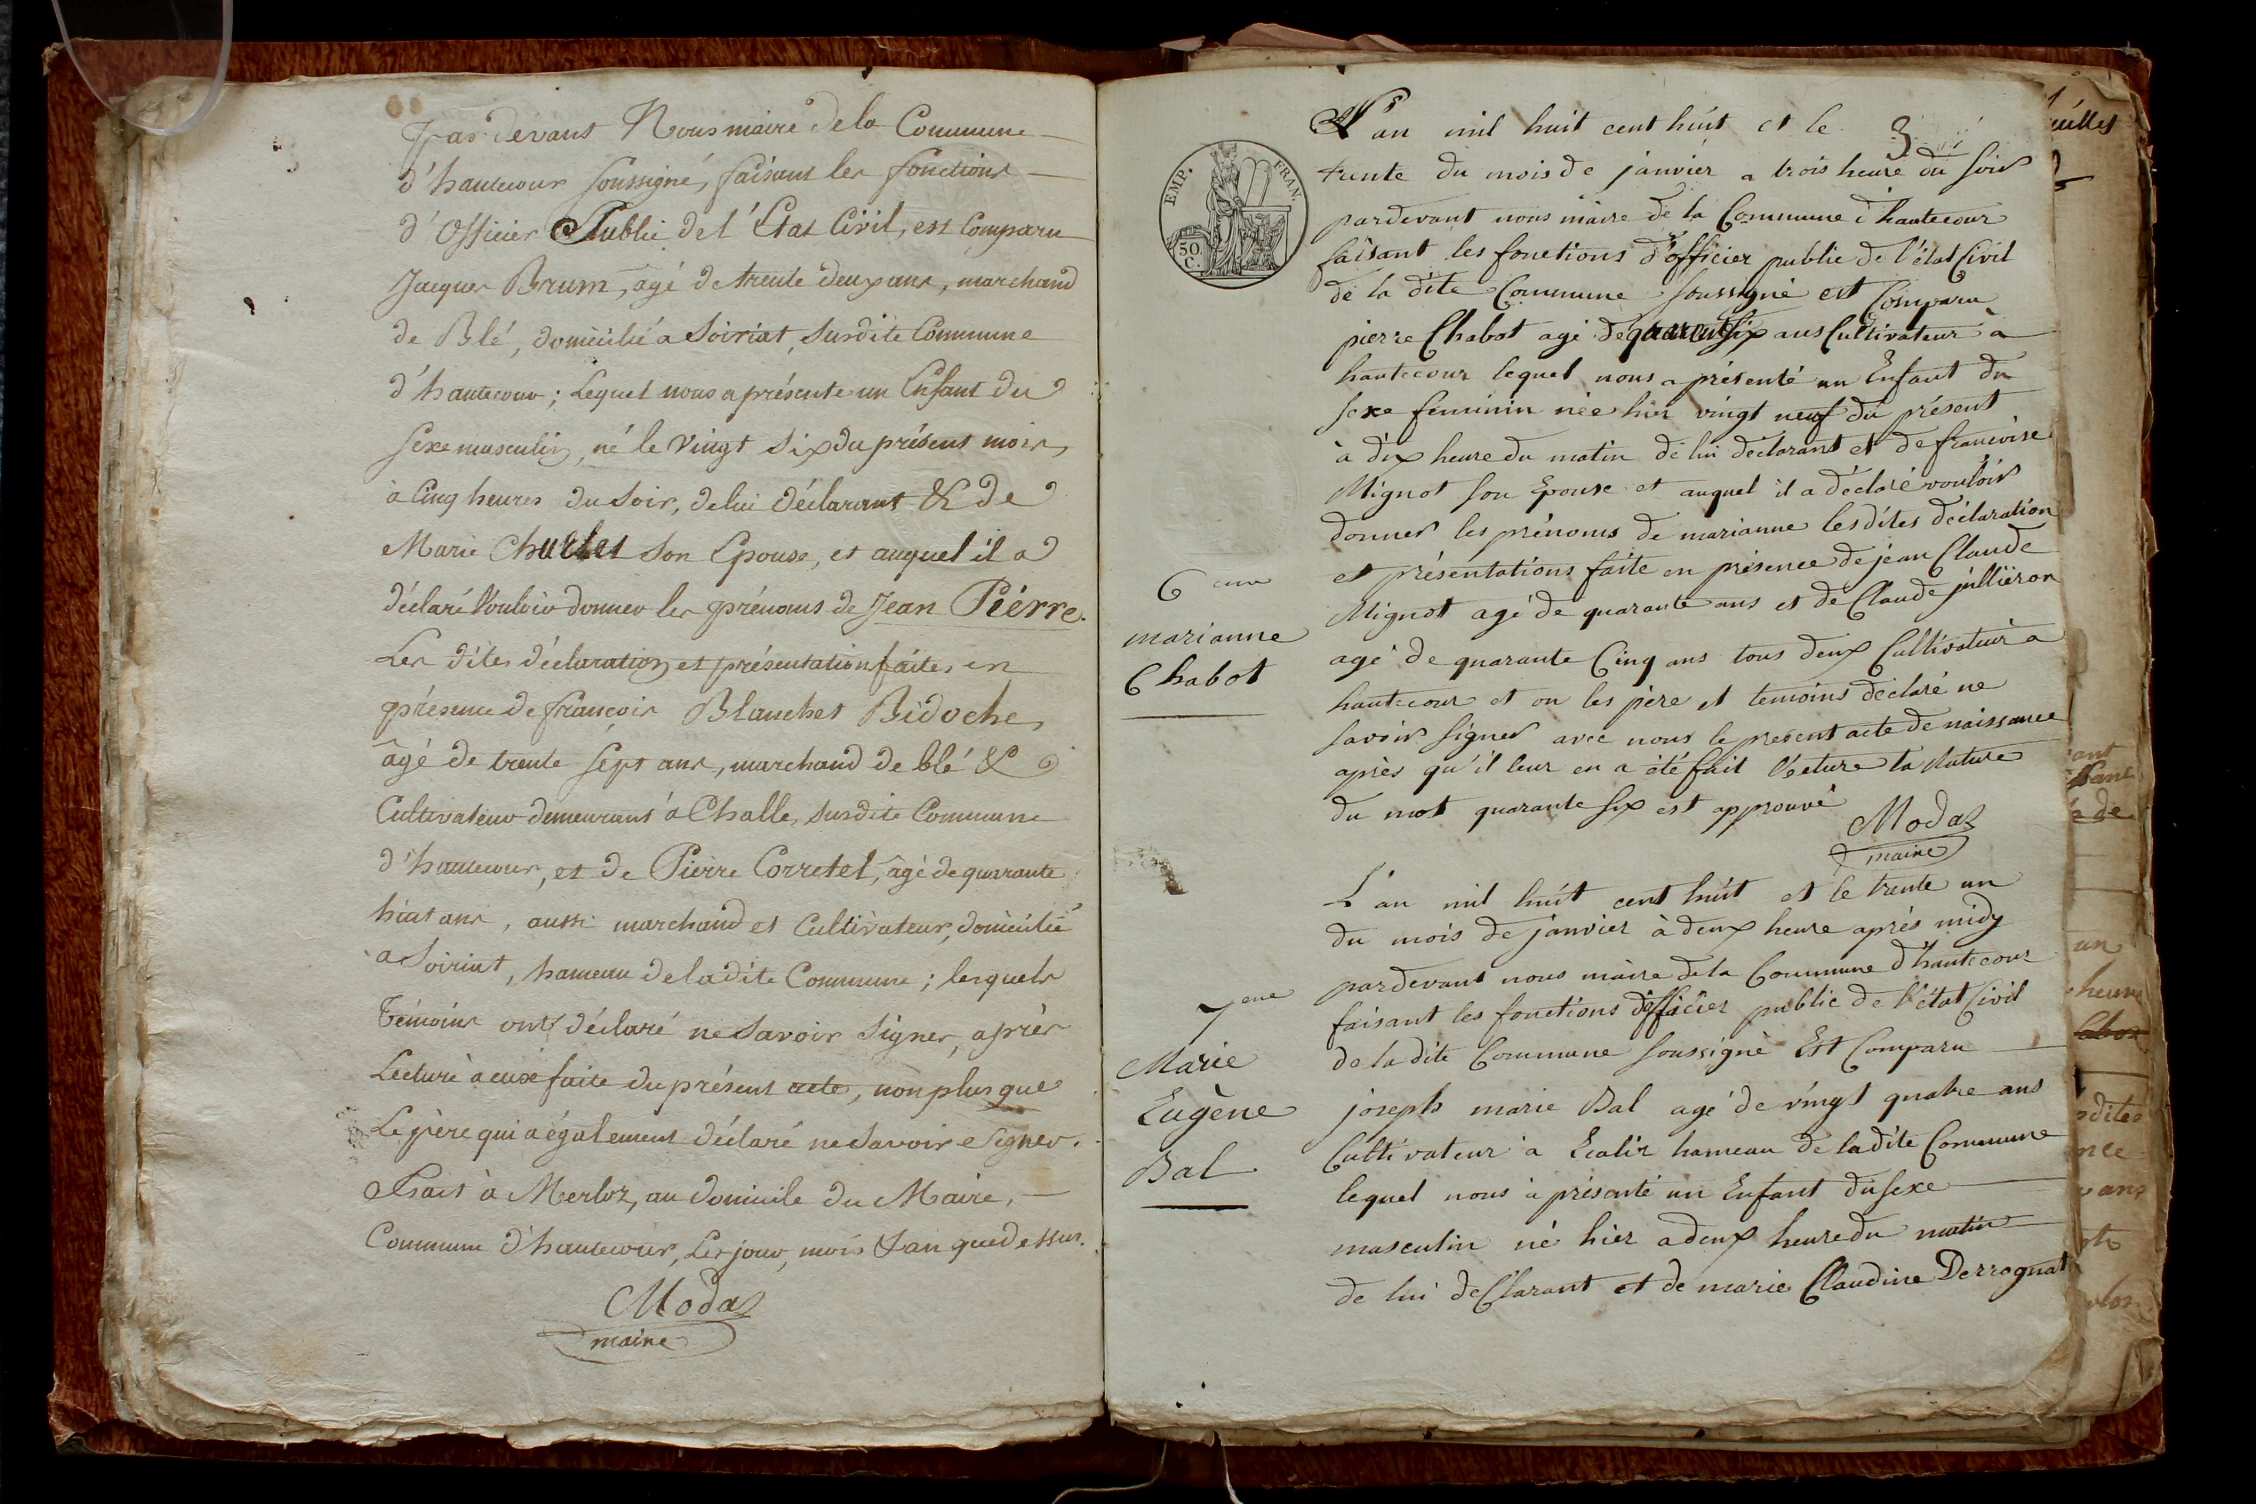 Par devant Nous maire de la Commune
d'hautecour soussigné, faisant les fonctions
d'Officier Public de l'État Civil, est Comparu
Jacques Brum, agé de trente deux ans, marchand
de Blé, domicilié a Soiriat, susdite Commune
d'hautecour ; Lequel nous a présenté un Enfant du
sexe masculin, né le Vingt Six du présent mois,
à Cinq heures du Soir, de lui déclarant & de
Marie Son Epouse, et auquel il a
déclaré Vouloir donner les prénoms de Jean Piérre.
Les dites déclaration et présentation faites en
présence de françois Blanchet Bidoche,
âgé de trente sépt ans, marchand de blé &
Cultivateur demeurant à Challe, susdite Commune
d'hautecour, et de Pierre Corretel, âgé de quarante
huit ans, aussi marchand et Cultivateur, domicilié
a Soiriat, hameau de ladite Commune ; lesquels
Témoins ont déclaré ne Savoir Signer, après
Lecture à eux faite du présent acte, non plus que
Le père qui a également déclaré ne Savoir Signer.
Fait à Merloz, au domicile du Maire,
Commune d'hautecour, Les jour, mois & an que dessus.
Modas
maire
EMP. FRAN.
50
C.
3
L'an mil huit cent huit et le
trente du mois de janvier a trois heure du soir
pardevant nous maire de la Commune d'hautecour
faisant les fonctions d'officier public de l'état Civil
de la dite Commune soussigné est Comparu
pierre Chabot agé de quarante six ans Cultivateur à
hautecour lequel nous a présenté un Enfant du
sexe feminin née hier vingt neuf du présent
à dix heure du matin de lui déclarant et de francoise
Mignot son Epouse et auquel il a déclaré vouloir
donner les prénoms de marianne lesdites déclaration
et présentations faite en présence de jean Claude
Mignot agé de quarante ans et de Claude juilliéron
agé de quarante Cinq ans tous deux Cultivateur a
hautecour et on les père et temoins déclaré ne
savoir signer avec nous le present acte de naissance
après qu'il leur en a été fait lecture la Rature
du mot quarante six est approuvé
Modas
maire
6 eme
marianne
Chabot
L'an mil huit cent huit et le trente un
du mois de janvier à deux heure après midy
pardevant nous maire de la Commune d'hautecour
faisant les fonctions d'officier public de l'état Civil
de la dite Commune soussigné Est Comparu
joseph marie Bal agé de vingt quatre ans
Cultivateur à hameau de ladite Commune
lequel nous à présenté un Enfant du sexe
masculin né hier a deux heure du matin
de lui declarant et de marie Claudine Derrognat
7 eme
Marie
Eugène
Bal